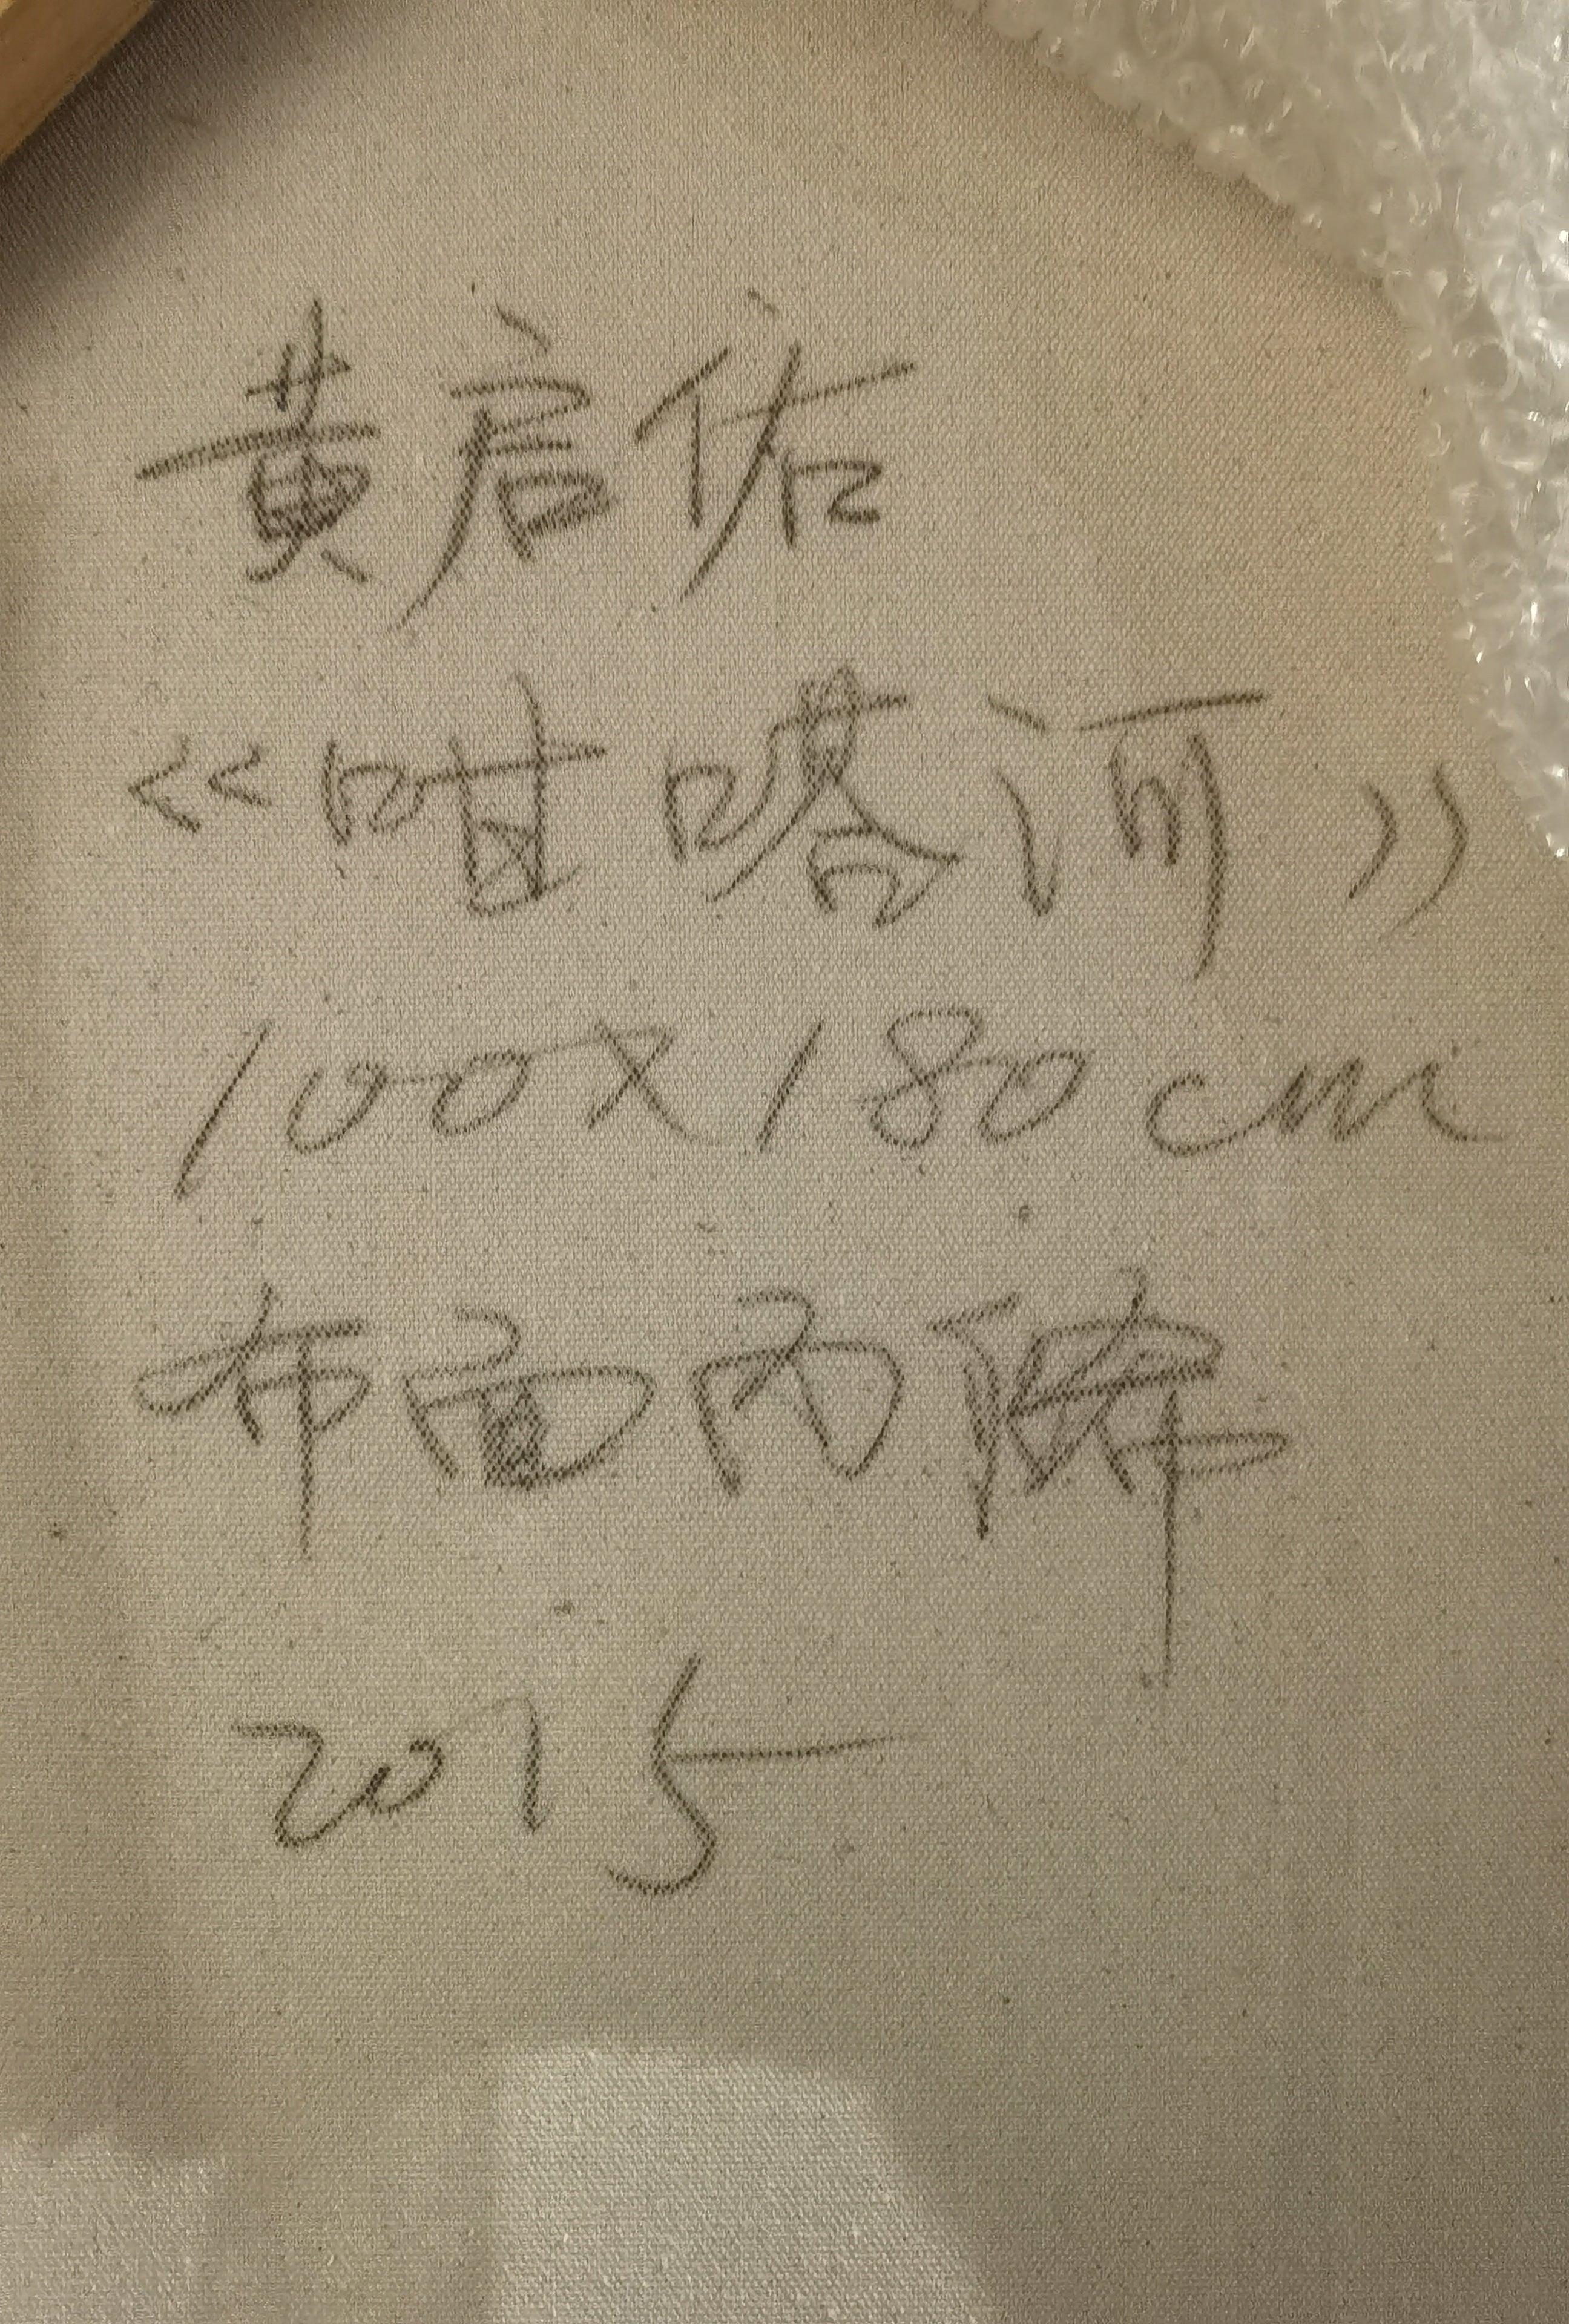 黄启佑
《咁嗒河》
100x180cm
布面丙烯
2015